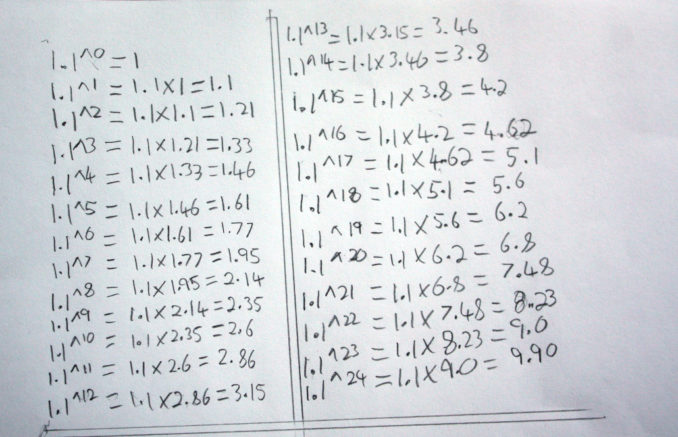 1.1^0 = 1
1.1^1 = 1.1×1 = 1.1
1.1^2 = 1.1×1.1 = 1.21
1.1^3 = 1.1×1.21 = 1.33
1.1^4 = 1.1×1.33 = 1.46
1.1^5 = 1.1×1.46 = 1.61
1.1^6 = 1.1×1.61 = 1.77
1.1^7 = 1.1×1.77 = 1.95
1.1^8 = 1.1×1.95 = 2.14
1.1^9 = 1.1×2.14 = 2.35
1.1^10 = 1.1×2.35 = 2.6
1.1^11 = 1.1×2.6 = 2.86
1.1^12 = 1.1×2.86 = 3.15
1.1^13 = 1.1×3.15 = 3.46
1.1^14 = 1.1×3.46 = 3.8
1.1^15 = 1.1×3.8 = 4.2
1.1^16 = 1.1×4.2 = 4.62
1.1^17 = 1.1×4.62 = 5.1
1.1^18 = 1.1×5.1 = 5.6
1.1^19 = 1.1×5.6 = 6.2
1.1^20 = 1.1×6.2 = 6.8
1.1^21 = 1.1×6.8 = 7.48
1.1^22 = 1.1×7.48 = 8.23
1.1^23 = 1.1×8.23 = 9.0
1.1^24 = 1.1×9.0 = 9.90